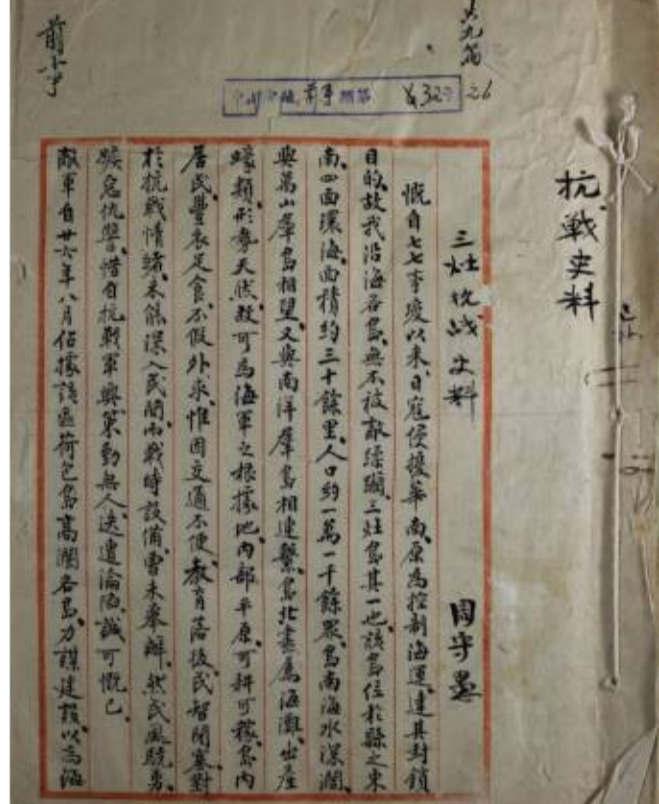 抗戰史料
共九篇
前事
三灶抗战史料 周守愚
慨自七七事变以來、日寇侵擾華南、原為控制海運、達其封鎖
目的、故我沿海各島、無不被敵蹂躪、三灶島其一也、該島位於縣之東
南、四面環海、面積約三十餘里、人口約一萬一千餘眾、島南海水深濶、
與萬山羣島相望、又與南洋羣島相連繫、島北盡屬海灘、出產
蠔類、形勢天然、故可為海軍之根據地、內部平原、可耕可稼、島內
居民、豐衣足食、不假外求、惟因交通不便、教育落後、民智閉塞、對
於抗戰情緒、未能深入民間、而戰時設備、曹未舉辦、然民風競勇、
惡仇讐、惜自抗戰軍興、策動無人、迭遭淪陷、誠可慨已、
敵軍自廿六年八月佔據該區荷包島高瀾各島、力謀建設、以為海